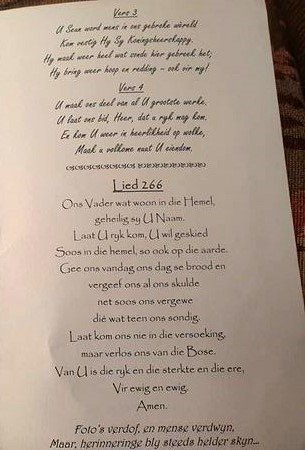 Vers 3
U Seun word mens in ons gebroke wêreld
Kom vestig Hy Sy Koningsheerskappy.
Hy maak weer heel wat sonde hier gebreek het;
Hy bring weer hoop en redding – ook vir my!
Vers 4
U maak ons deel van al U grootste werke.
U laat ons bid, Heer, dat u ryk mag kom,
En kom U weer in heerlikheid op wolke,
Maak u volkome nuut U eiendom.
Lied 266
Ons Vader wat woon in die Hemel,
geheilig sy U Naam.
Laat U ryk kom, U wil geskied
Soos in die hemel, so ook op die aarde.
Gee ons vandag ons dag se brood en
vergeef ons al ons skulde
net soos ons vergewe
dié wat teen ons sondig.
Laat kom ons nie in die versoeking,
maar verlos ons van die Bose.
Van U is die ryk en die sterkte en die ere,
Vir ewig en ewig.
Amen.
Foto's verdof, en mense verdwyn,
Maar, herinneringe bly steeds helder skyn...